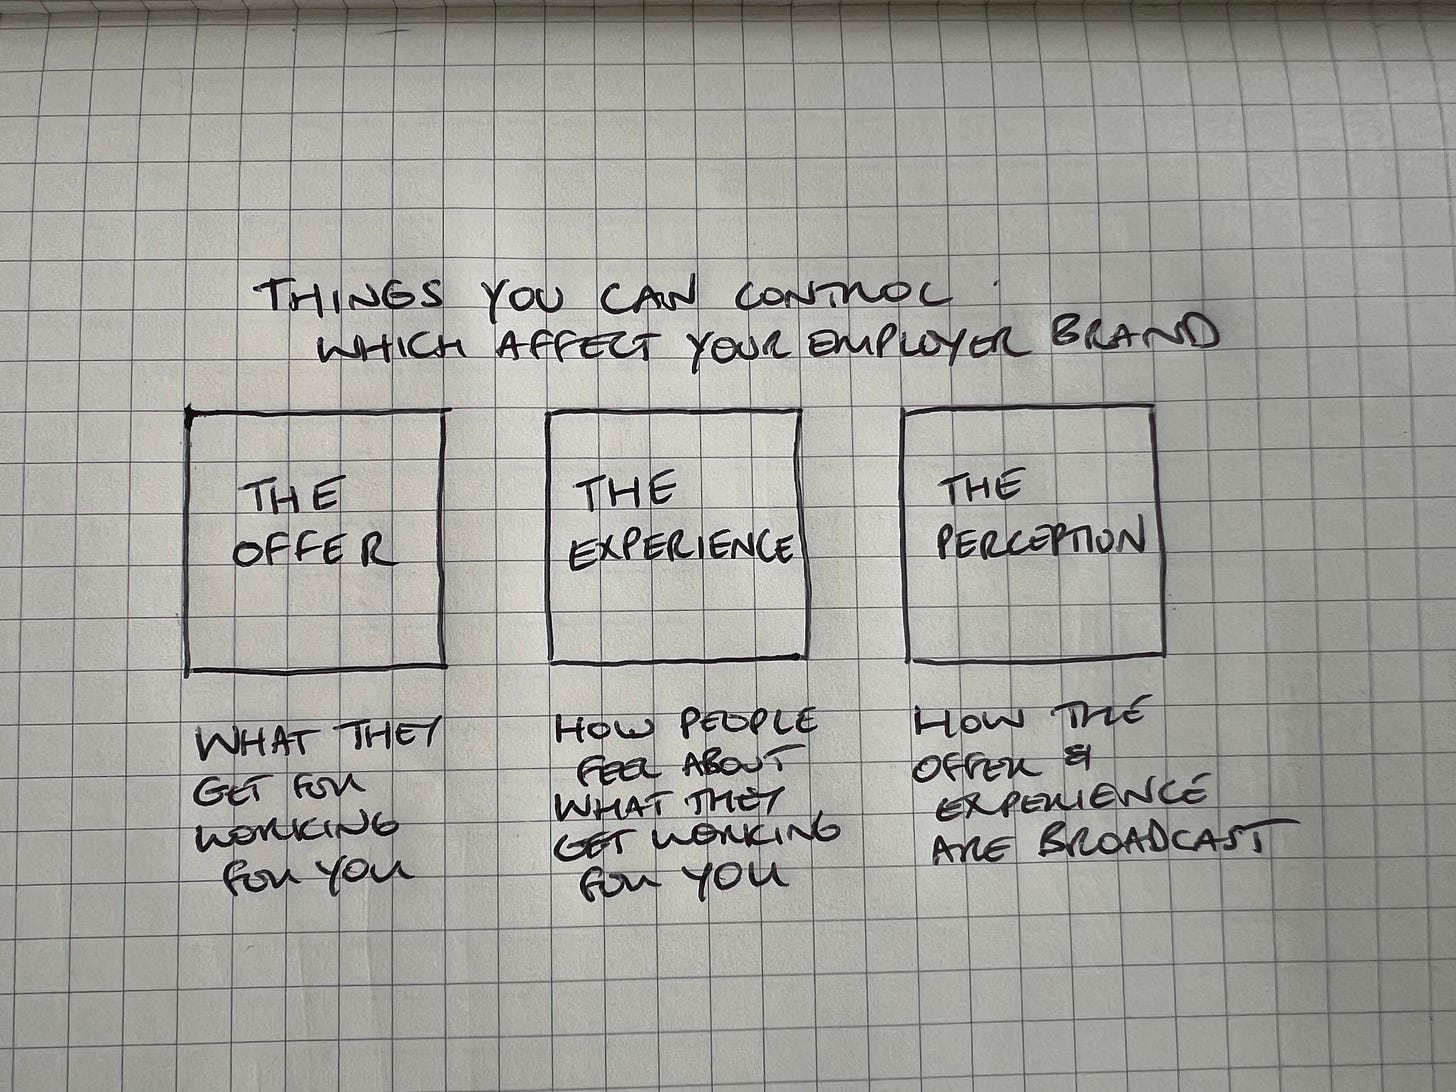 THINGS YOU CAN CONTROL
WHICH AFFECT YOUR EMPLOYER BRAND
THE
OFFER
THE
EXPERIENCE
THE
PERCEPTION
WHAT THEY
GET FOR
WORKING
FOR YOU
HOW PEOPLE
FEEL ABOUT
WHAT THEY
GET WORKING
FOR YOU
HOW THE
OFFER &
EXPERIENCE
ARE BROADCAST